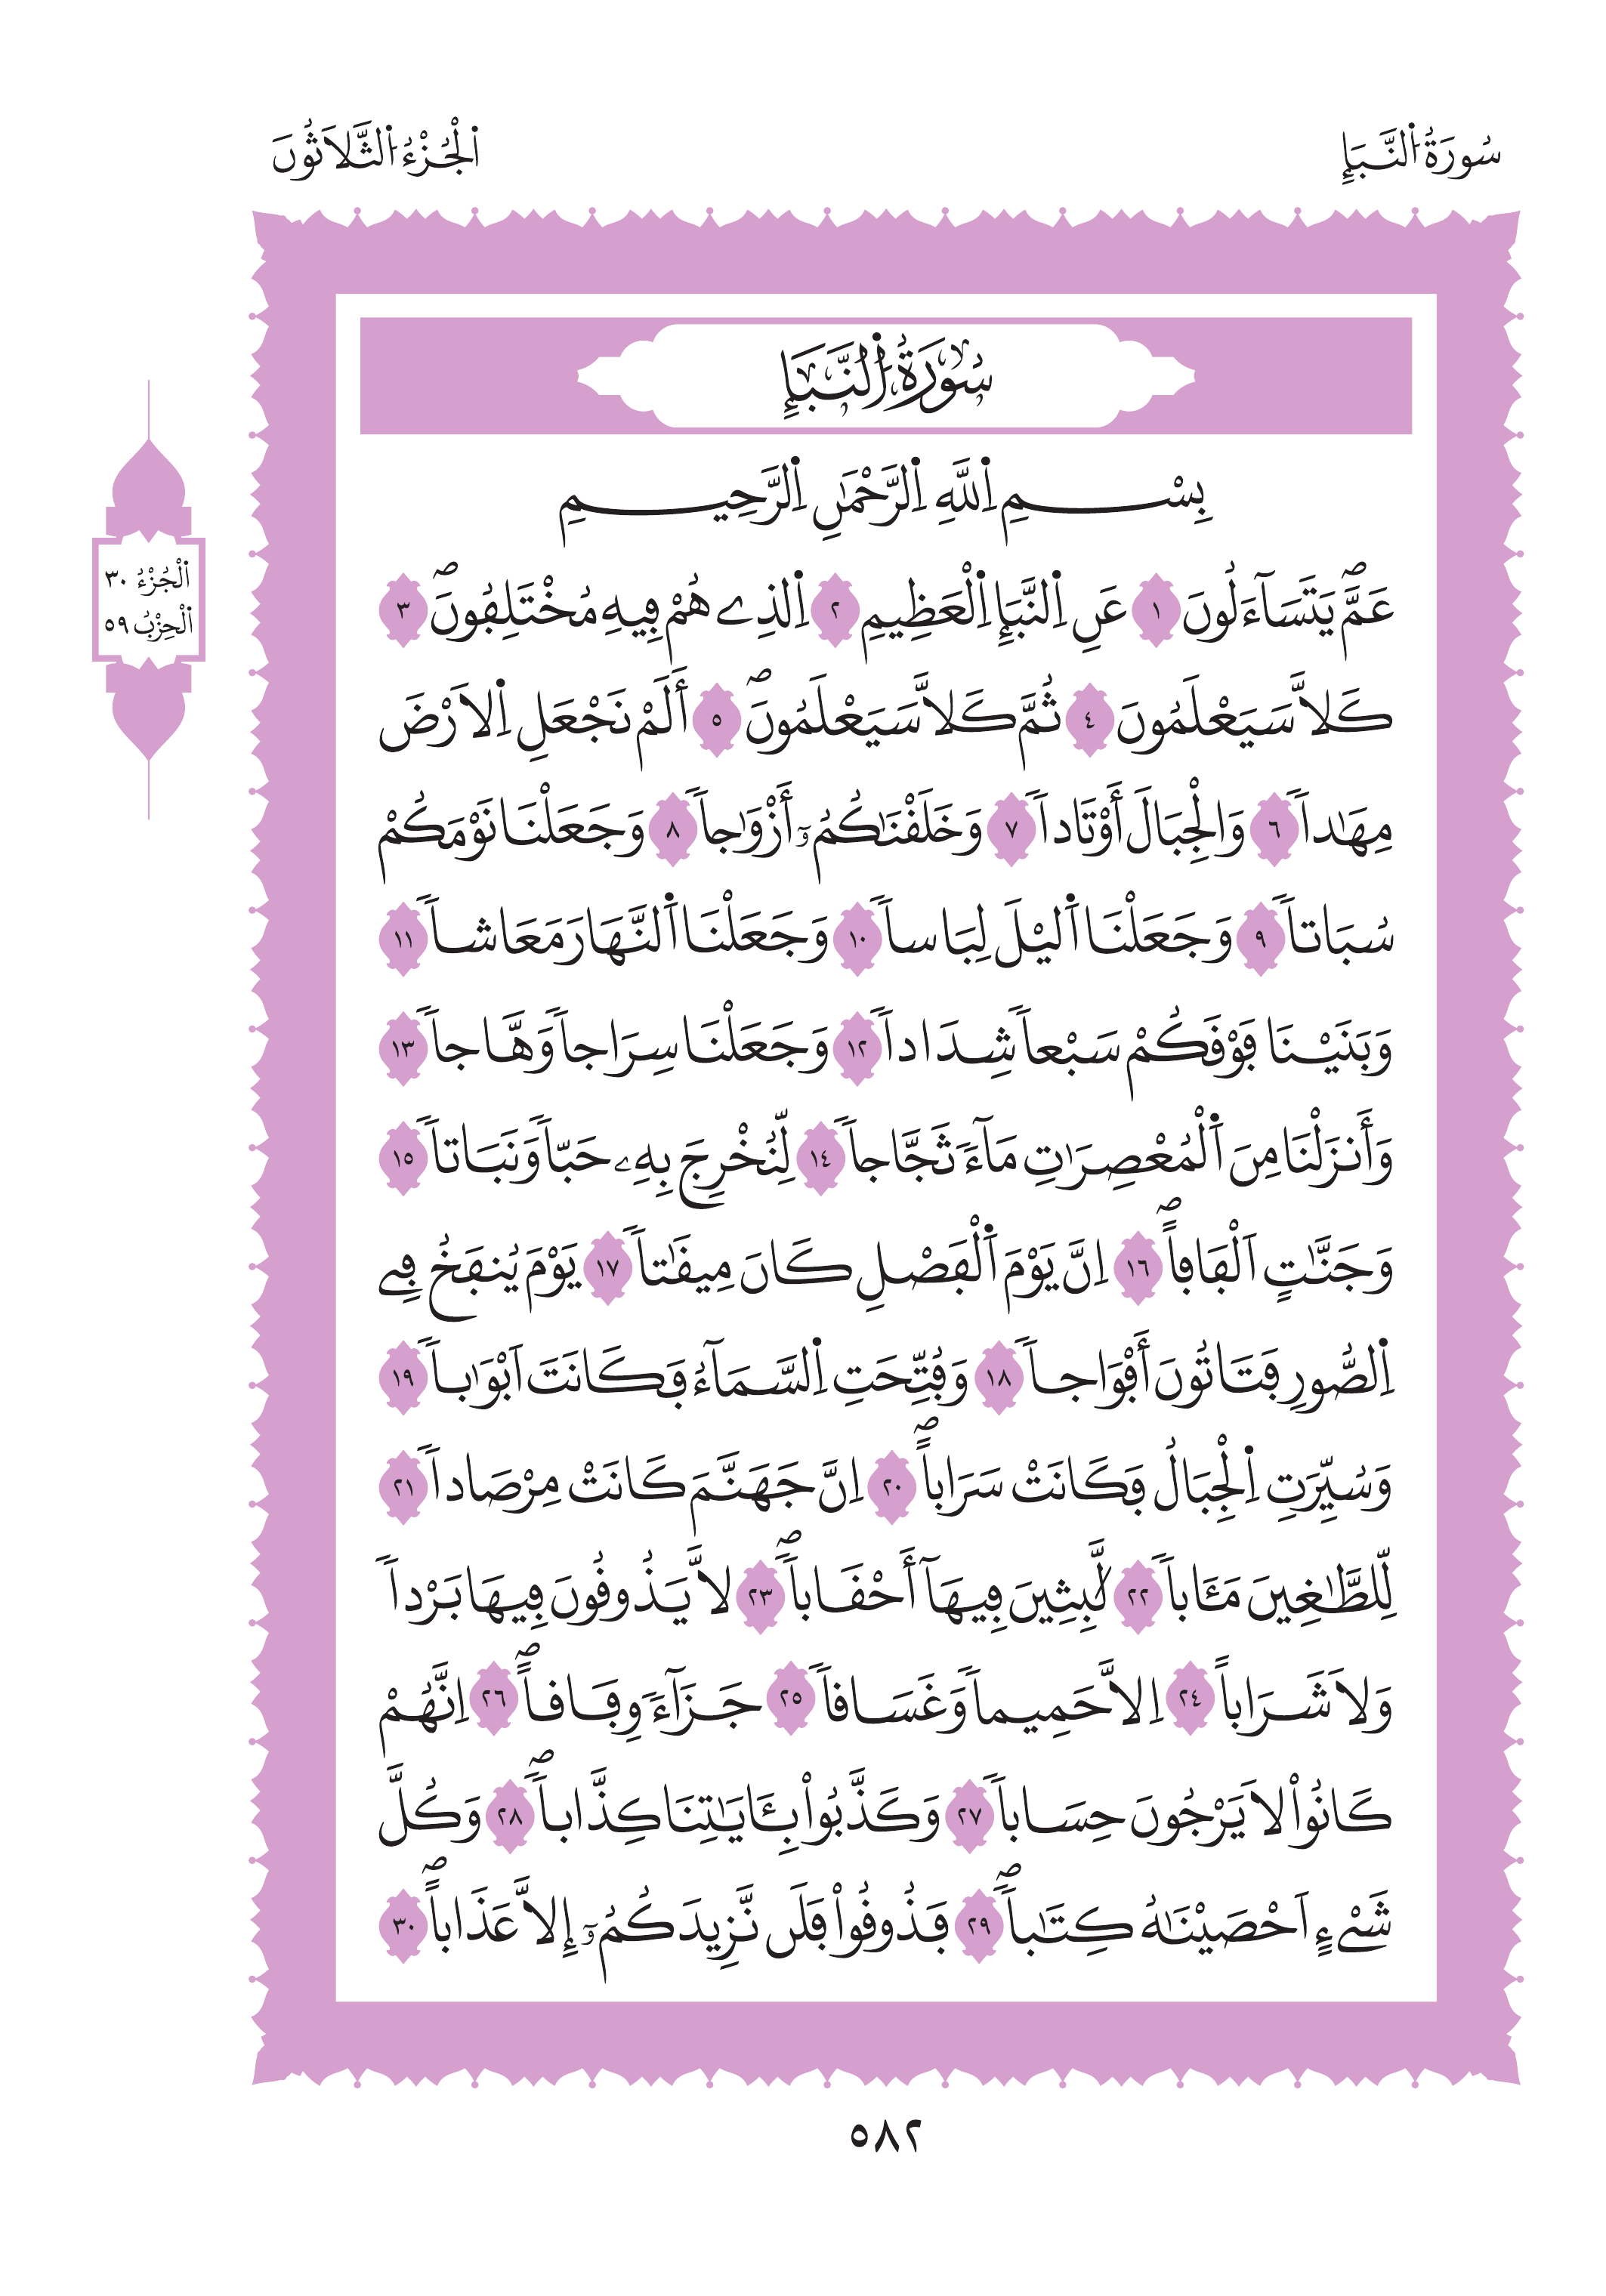 سُورَةُ اُ۬لنَّبَإِ
اُ۬لْجُزْءُ اُ۬لثَّلَاثُونَ
سُورَةُ اُ۬لنَّبَإِ
اَ۬لْجُزْءُ ٣٠
اَ۬لْحِزْبُ ٥٩
بِسْمِ اِ۬للَّهِ اِ۬لرَّحْمَٰنِ اِ۬لرَّحِيمِ
عَمَّۖ يَتَسَآءَلُونَ ١ عَنِ اِ۬لنَّبَإِ اِ۬لْعَظِيمِ ٢ اِ۬لذِے هُمْ فِيهِ مُخْتَلِفُونَۖ ٣
كَلاَّ سَيَعْلَمُونَ ٤ ثُمَّ كَلاَّ سَيَعْلَمُونَۖ ٥ أَلَمْ نَجْعَلِ اِ۬لَارْضَ
مِهَٰداٗ ٦ وَالْجِبَالَ أَوْتَاداٗ ٧ وَخَلَقْنَٰكُمُۥٓ أَزْوَٰجاٗ ٨ وَجَعَلْنَا نَوْمَكُمْ
سُبَاتاٗ ٩ وَجَعَلْنَا اَ۬ليْلَ لِبَاساٗ ١٠ وَجَعَلْنَا اَ۬لنَّهَارَ مَعَاشاٗ ١١
وَبَنَيْنَا فَوْقَكُمْ سَبْعاٗ شِدَاداٗ ١٢ وَجَعَلْنَا سِرَاجاٗ وَهَّاجاٗ ١٣
وَأَنزَلْنَا مِنَ اَ۬لْمُعْصِرَٰتِ مَآءٗ ثَجَّاجاٗ ١٤ لِّنُخْرِجَ بِهِۦ حَبّاٗ وَنَبَاتاٗ ١٥
وَجَنَّٰتٍ اَلْفَافاًۖ ١٦ اِنَّ يَوْمَ اَ۬لْفَصْلِ كَانَ مِيقَٰتاٗ ١٧ يَوْمَ يُنفَخُ فِے
اِ۬لصُّورِ فَتَاتُونَ أَفْوَاجاٗ ١٨ وَفُتِّحَتِ اِ۬لسَّمَآءُ فَكَانَتَ اَبْوَٰباٗ ١٩
وَسُيِّرَتِ اِ۬لْجِبَالُ فَكَانَتْ سَرَاباًۖ ٢٠ اِنَّ جَهَنَّمَ كَانَتْ مِرْصَاداٗ ٢١
لِّلطَّٰغِينَ مَـَٔاباٗ ٢٢ لَّٰبِثِينَ فِيهَآ أَحْقَاباٗۖ ٢٣ لاَّ يَذُوقُونَ فِيهَا بَرْداٗ
وَلَا شَرَاباً ٢٤ اِلاَّ حَمِيماٗ وَغَسَاقاٗ ٢٥ جَزَآءٗ وِفَاقاًۖ ٢٦ اِنَّهُمْ
كَانُواْ لَا يَرْجُونَ حِسَاباٗ ٢٧ وَكَذَّبُواْ بِـَٔايَٰتِنَا كِذَّاباٗۖ ٢٨ وَكُلَّ
شَےْءٍ اَحْصَيْنَٰهُ كِتَٰباٗۖ ٢٩ فَذُوقُواْ فَلَن نَّزِيدَكُمُۥٓ إِلاَّ عَذَاباًۖ ٣٠
٥٨٢